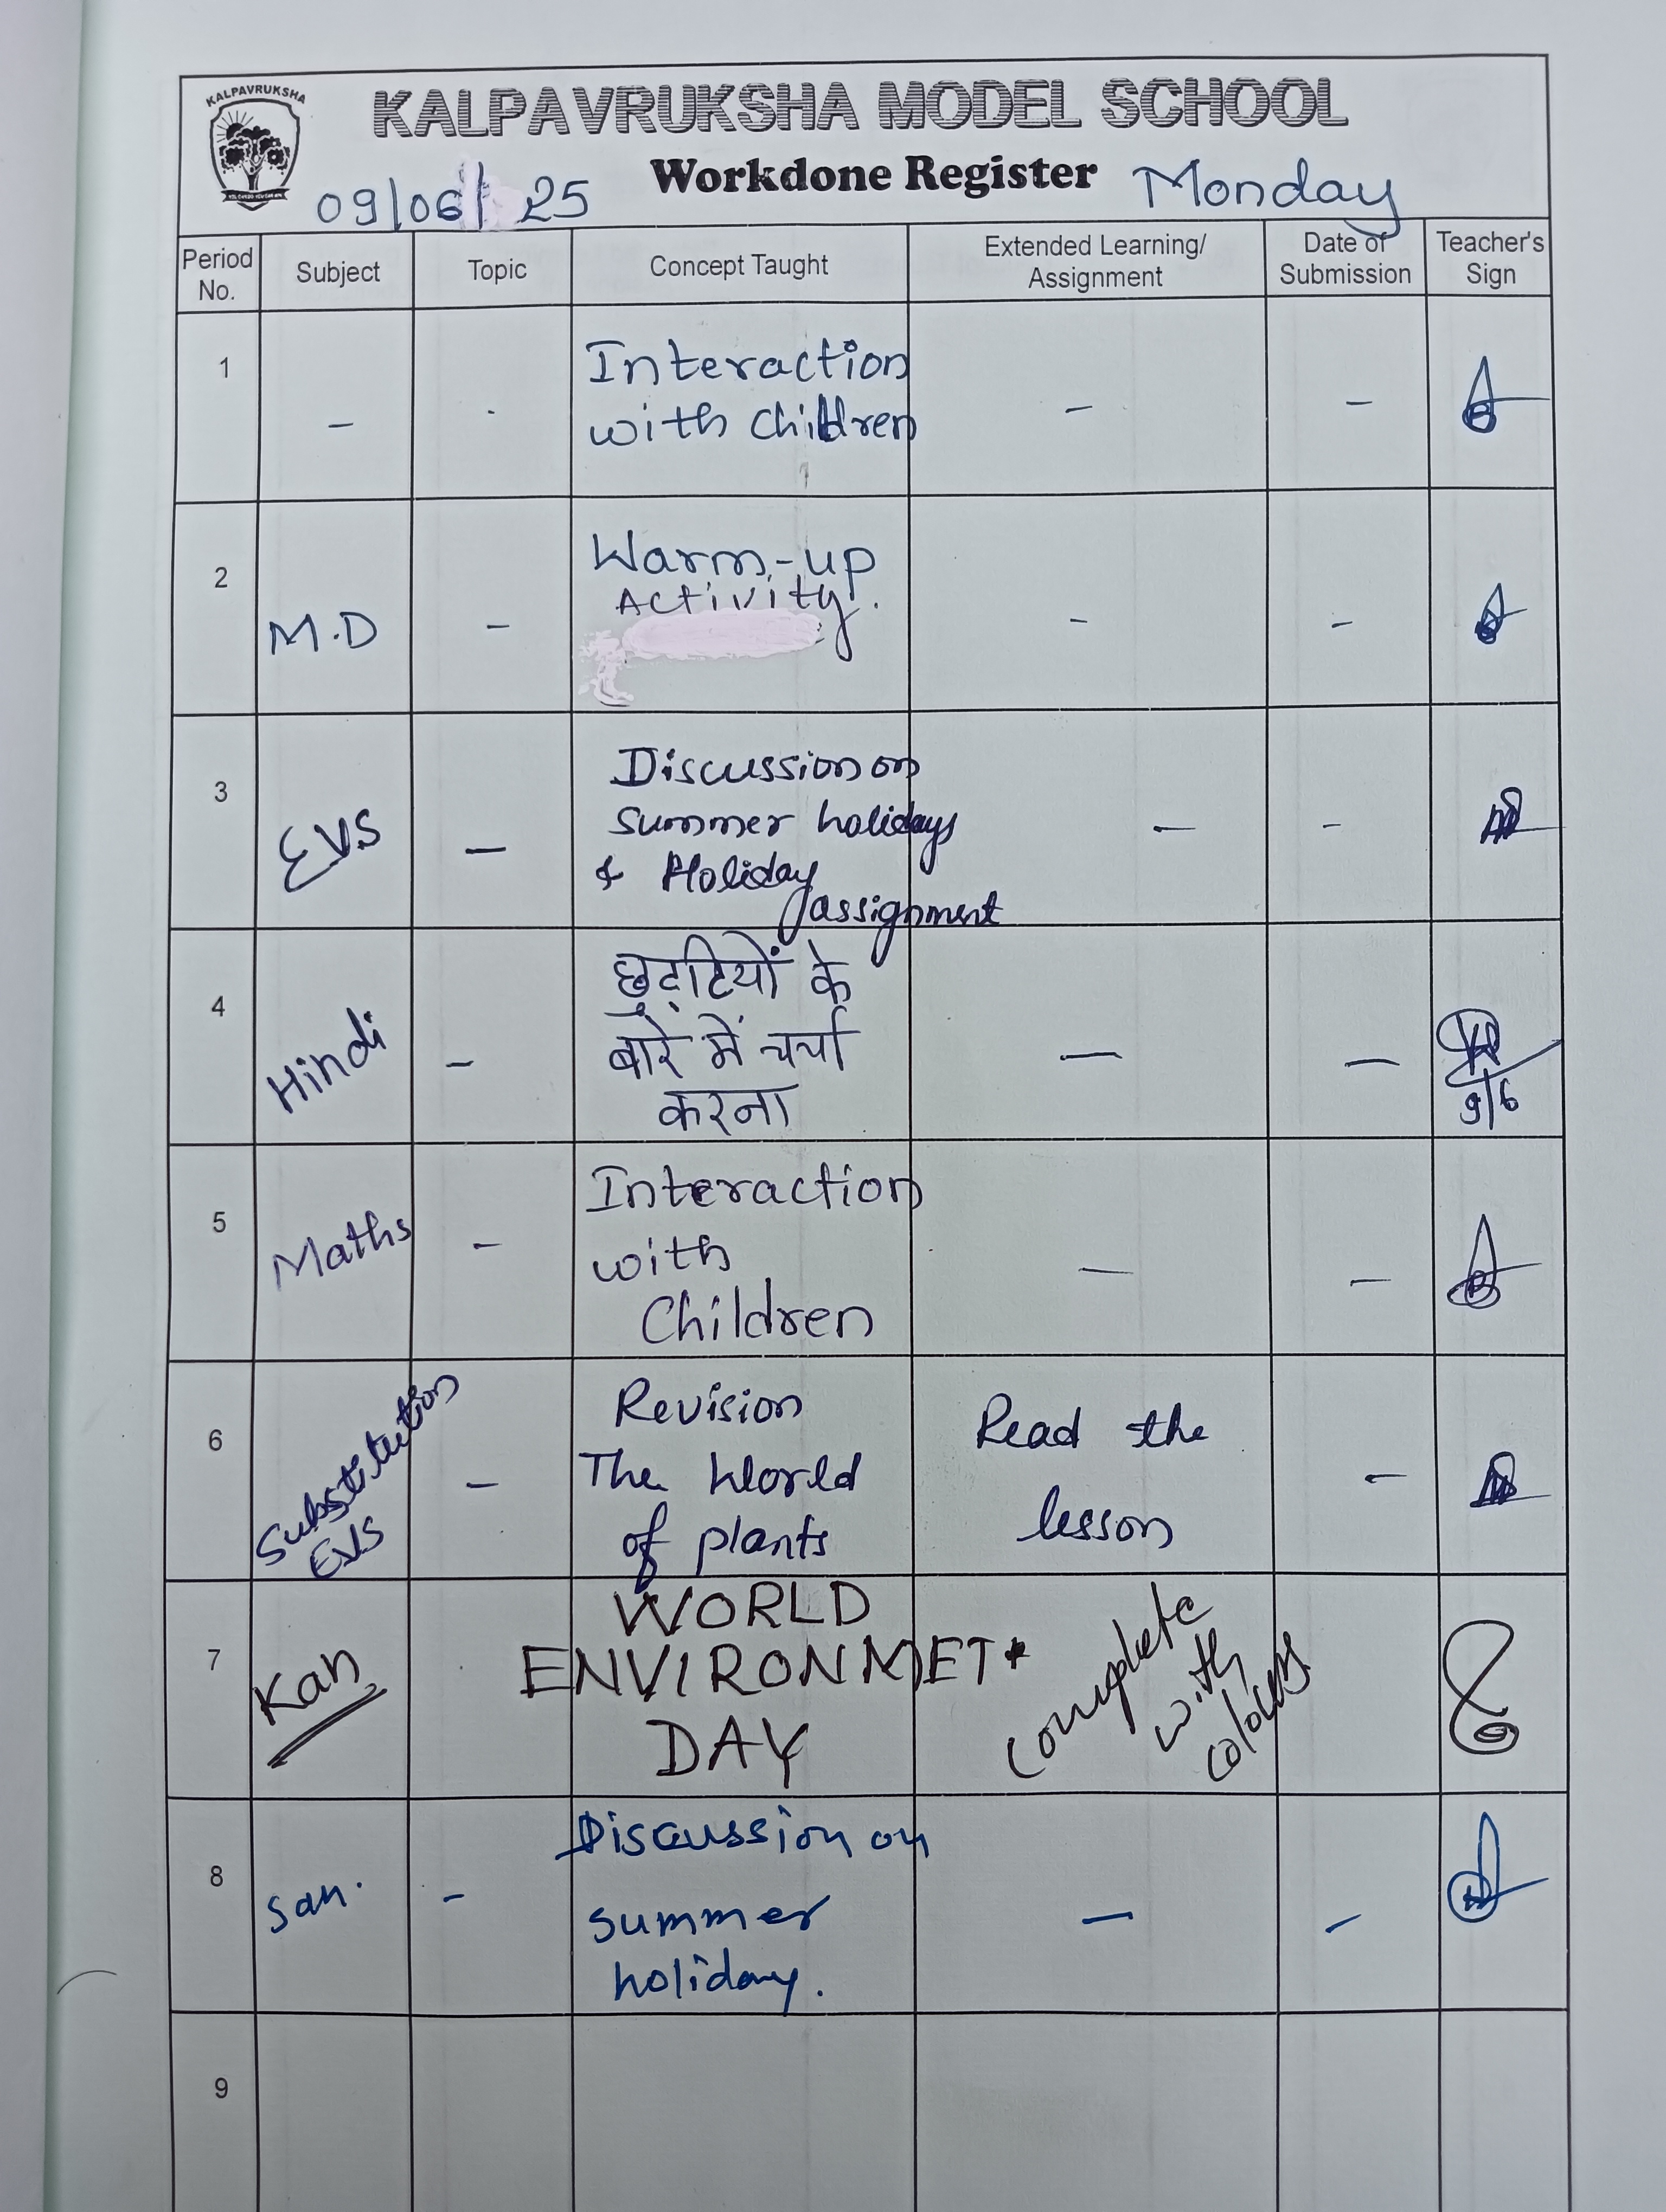 KALPAVRUKSHA
KALPAVRUKSHA MODEL SCHOOL
Workdone Register Monday
09/06/25
Period No. Subject Topic Concept Taught Extended Learning/ Assignment Date of Submission Teacher's Sign
1 - - Interaction - -
with children
2 M.D - Warm-up - -
Activity.
3 EVS - Discussion on - -
Summer holidays
& Holiday
assignment
4 Hindi - छुट्टियों के - -
बारे में चर्चा
करना
9/6
5 Maths - Interaction - -
with
Children
6 Substitution - Revision Read the -
EVS The World lesson
of plants
7 Kan WORLD complete
ENVIRONMET* with
DAY colours
8 San. - Discussion on - -
summer
holiday.
9